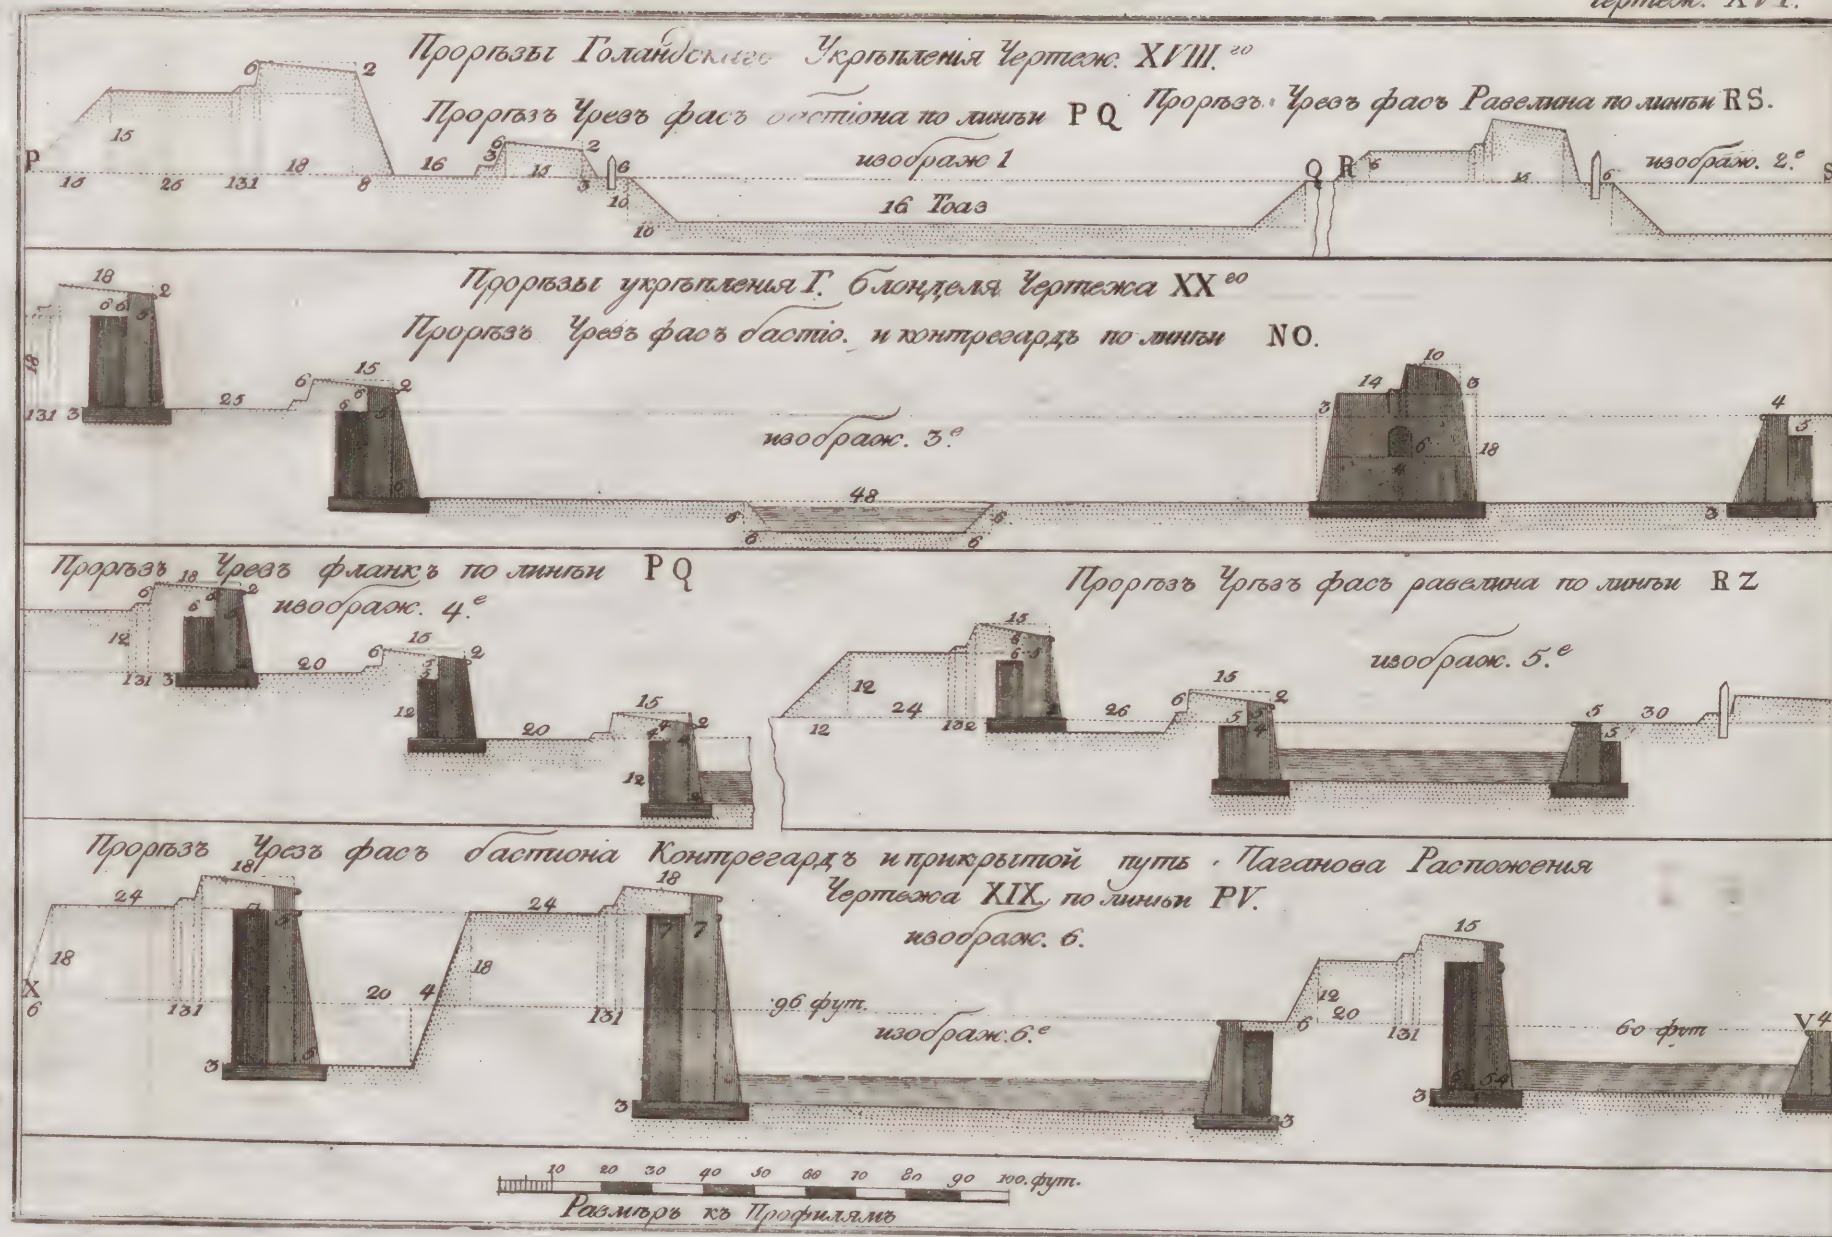 Чертеж. XVI.
Прорѣзы Голандскаго Укрѣпленія Чертеж. XVIII.го
Прорѣзъ Чрезъ фасъ бастіона по линѣи P Q
Прорѣзъ Чрезъ фасъ Равелина по линѣи RS.
изображ 1
изображ. 2.е
6 2
15
P 15 26 131 18 8
16 6 3 15 2 3 6 10 10
16 Тоаз
Q R 6 15 6 S
Прорѣзы укрѣпленія Г. Блонделя Чертежа XXго
Прорѣзъ Чрезъ фасъ бастіо. и контрегардъ по линѣи NO.
изображ. 3.е
18 2
6 6 5
18
131 3 25
6 15 2
6 6 5 6
48
6 6
6 6
10
14 3
3
6 18
4
4
5
3
Прорѣзъ Чрезъ фланкъ по линѣи PQ
изображ. 4.е
6 18 2
6
12
131 3 20
6 15 2
5
12
20
15 2
4 4
12
Прорѣзъ Чрѣзъ фасъ равелина по линѣи RZ
изображ. 5.е
15
6
6 5
12
12 24 132
26 6 15 2
5 5
4
5 30
5
Прорѣзъ Чрезъ фасъ бастіона Контрегардъ и прикрытой путь. Паганова Распожения
Чертежа XIX, по линѣи PV.
изображ. 6.
24 18
18
X
6
131
3 5
20 4
24 18
18
7 7
131
96 фут.
изображ. 6.е
3
6 12
20
3
15
131
60 фут
V 4
3 5 4
10 20 30 40 50 60 70 80 90 100. фут.
Размѣръ къ Профилямъ